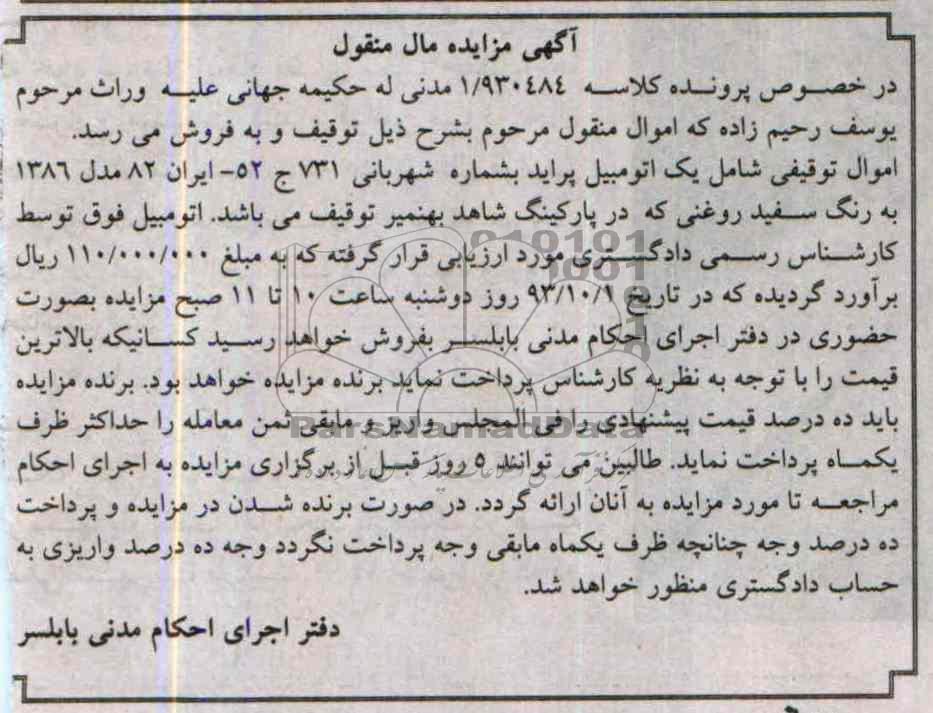 آگهی مزایده مال منقول
در خصوص پرونده کلاسه ۱/۹۳۰٤۸٤ مدنی له حکیمه جهانی علیه وراث مرحوم
یوسف رحیم زاده که اموال منقول مرحوم بشرح ذیل توقیف و به فروش می رسد.
اموال توقیفی شامل یک اتومبیل پراید بشماره شهربانی ۷۳۱ ج ۵۲- ایران ۸۲ مدل ۱۳۸٦
به رنگ سفید روغنی که در پارکینگ شاهد بهنمیر توقیف می باشد. اتومبیل فوق توسط
کارشناس رسمی دادگستری مورد ارزیابی قرار گرفته که به مبلغ ۱۱۰/۰۰۰/۰۰۰ ریال
برآورد گردیده که در تاریخ ۹۳/۱۰/۱ روز دوشنبه ساعت ۱۰ تا ۱۱ صبح مزایده بصورت
حضوری در دفتر اجرای احکام مدنی بابلسر بفروش خواهد رسید کسانیکه بالاترین
قیمت را با توجه به نظریه کارشناس پرداخت نماید برنده مزایده خواهد بود. برنده مزایده
باید ده درصد قیمت پیشنهادی را فی المجلس واریز و مابقی ثمن معامله را حداکثر ظرف
یکماه پرداخت نماید. طالبین می توانند ۵ روز قبل از برگزاری مزایده به اجرای احکام
مراجعه تا مورد مزایده به آنان ارائه گردد. در صورت برنده شدن در مزایده و پرداخت
ده درصد وجه چنانچه ظرف یکماه مابقی وجه پرداخت نگردد وجه ده درصد واریزی به
حساب دادگستری منظور خواهد شد.
دفتر اجرای احکام مدنی بابلسر
ParsNamadData